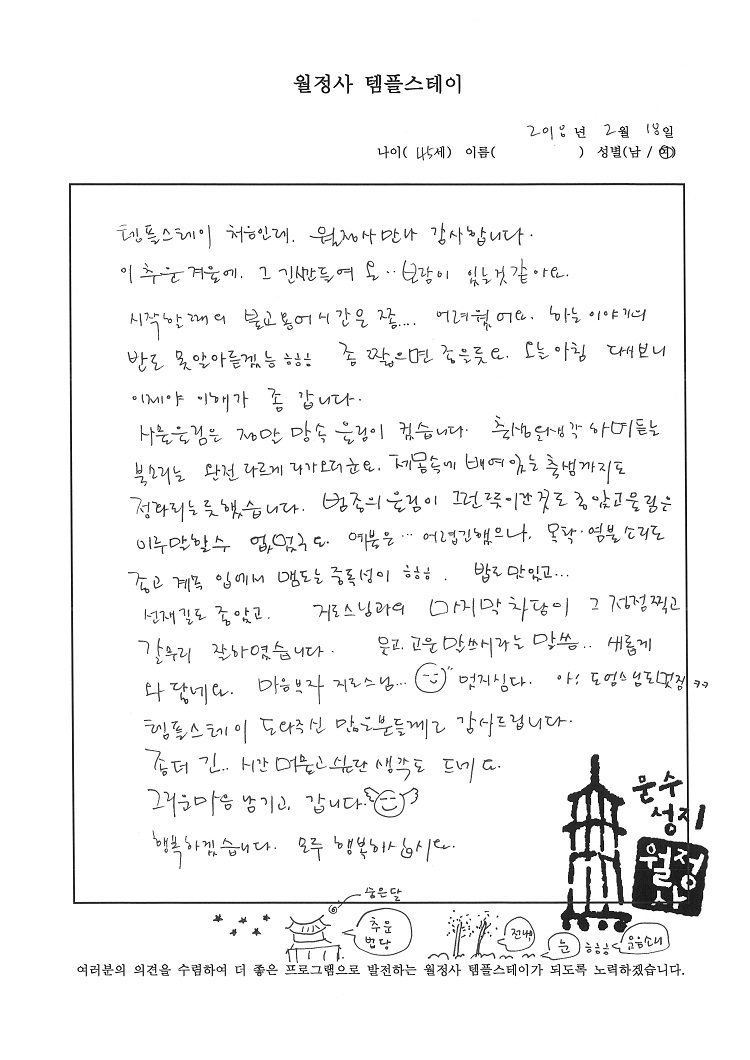 월정사 템플스테이
2018년 2월 18일
나이( 45세) 이름( ) 성별(남 / 여)
템플스테이 처음인데. 월정사 만나 감사합니다.
이 추운 겨울에. 그 긴시간들여 온.. 보람이 있는것 같아요.
시작할때의 불교용어 시간은 쫌... 어려웠어요. 하는 이야기의
반도 못알아듣겠는 ㅎㅎㅎ 좀 짧으면 좋을듯요. 오늘아침 대보니
이제야 이해가 좀 갑니다.
사물울림은 정말 맘속 울림이 컸습니다. 축생의생각 하며듣는
북소리는 완전 다르게 다가오더군요. 제몸속에 배여있는 축생까지도
정화되는듯 했습니다. 범종의 울림이 그런 것도 좋았고 울림은
이루말할수 없었구요. 예불은... 어렵긴했으나, 목탁·염불소리도
좋고 계속 입에서 맴도는 중독성이 ㅎㅎㅎ. 밥도 맛있고...
선재길도 좋았고. 지도스님과의 마지막 차담이 그 정점찍고
갈무리 잘하였습니다. 웃고, 고운말쓰시라는 말씀.. 새롭게
와 닿네요. 마음부자 지도스님... 멋지십다. 아! 도엄스님도멋짐 ㅋㅋ
템플스테이 도와주신 많은분들께도 감사드립니다.
좀더 긴.. 시간 머물고 싶단 생각도 드네요.
그리운마음 남기고, 갑니다.
행복하겠습니다. 모두 행복하십시요.
문수
성지
월정
사
숨은달
추운
법당
눈
ㅎㅎㅎ
여러분의 의견을 수렴하여 더 좋은 프로그램으로 발전하는 월정사 템플스테이가 되도록 노력하겠습니다.